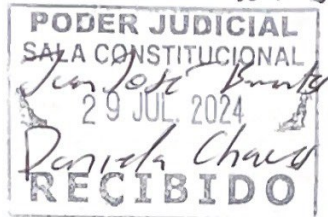 PODER JUDICIAL
SALA CONSTITUCIONAL
Juan José
29 JUL. 2024
Daniela Chaves
RECIBIDO